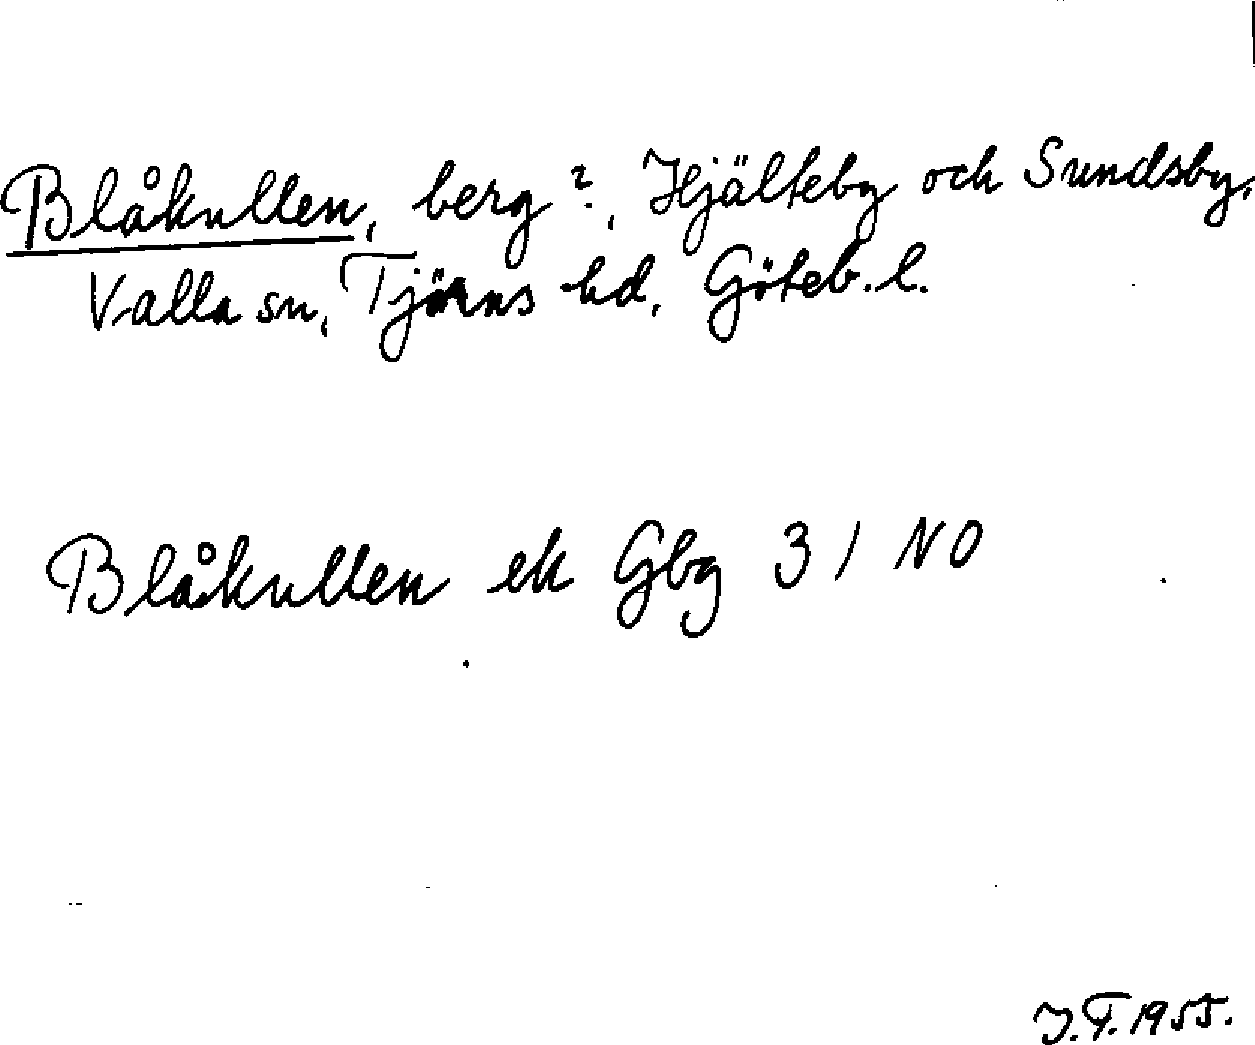 Blåkullen, berg?, Hjälteby och Sundsby,
Valla sn, Tjörns hd, Göteb. l.
Blåkullen ek Gbg 31 NO
J.F. 1955.